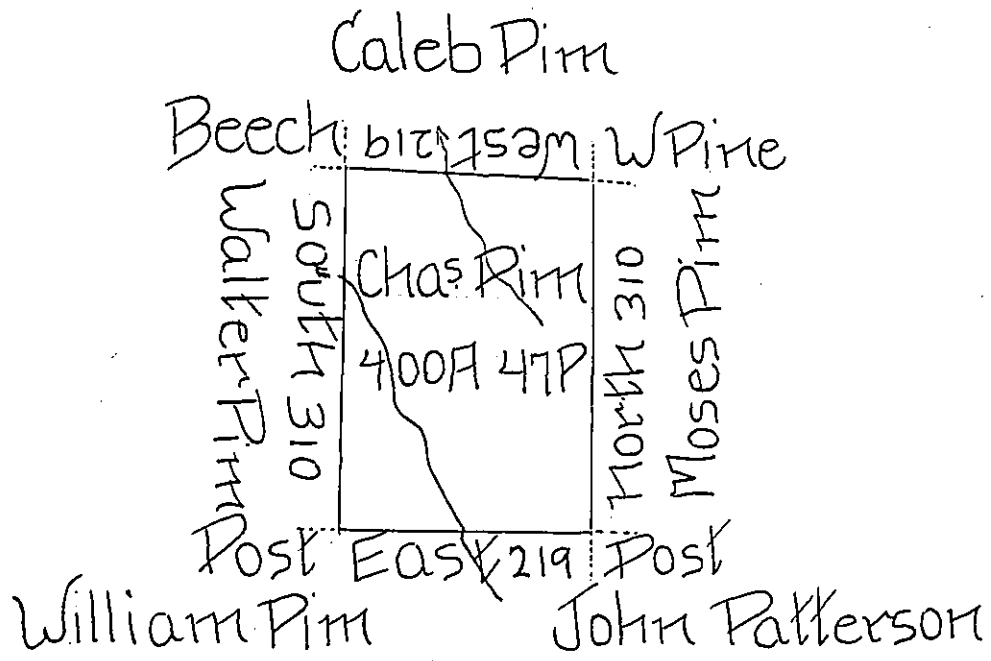 Caleb Pim
Beech West 219 W Pine
Walter Pim
South 310
Chas Pim
400A 47P
North 310
Moses Pim
Post East 219 Post
William Pim John Patterson